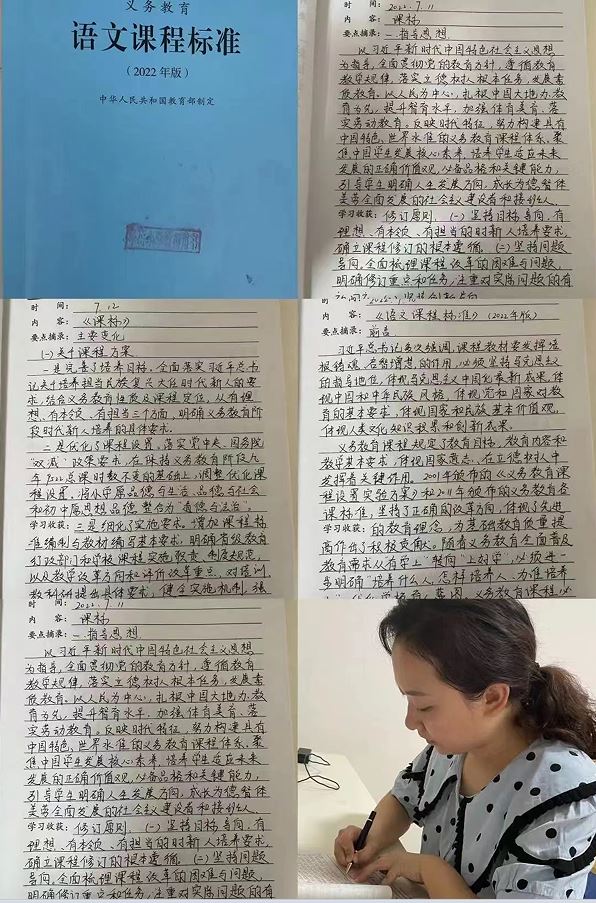 义务教育
语文课程标准
（2022年版）
中华人民共和国教育部制定
时 间：2022.7.11
内 容：课标
要点摘录：一.指导思想
以习近平新时代中国特色社会主义思想
为指导,全面贯彻党的教育方针，遵循教育
教学规律，落实立德树人根本任务，发展素
质教育。以人民为中心，扎根中国大地办教
育为先，提升智育水平，加强体育美育，落
实劳动教育。反映时代特征，努力构建具有
中国特色、世界水准的义务教育课程体系。聚
焦中国学生发展核心素养，培养学生适应未来
发展的正确价值观，必备品格和关键能力，
引导学生明确人生发展方向，成长为德智体
美劳全面发展的社会主义建设者和接班人。
学习收获：修订原则，（一）坚持目标导向，有
理想、有本领、有担当的时新人培养要求，
确立课程修订的根本遵循。（二）坚持问题
导向。全面梳理课程改革的困难与问题，
明确修订重点和任务，注重对实际问题的有
时 间：7.12
内 容：《课标》
要点摘录：主要变化
（一）关于课程方案
一是完善了培养目标。全面落实习近平总书
记关于培养担当民族复兴大任时代新人的要
求，结合义务教育性质及课程定位，从有理
想、有本领、有担当三个方面，明确义务教育阶
段时代新人培养的具体要求。
二是优化了课程设置。落实党中央、国务院
“双减”政策要求，在保持义务教育阶段九
年9522总课时数不变的基础上，调整优化课
程设置。将小学原品德与生活、品德与社会
和初中原思想品德整合为“道德与法治”。
学习收获：三是细化了实施要求。增加课程标
准编制与教材编写基本要求，明确省级教育
行政部门和学校课程实施职责、制度规范，
以及教学改革方向和评价改革重点，对培训、
教科研提出具体要求，健全实施机制，强
内 容：《语文课程标准》（2022年版）
要点摘录：前言
习近平总书记多次强调，课程教材要发挥培
根铸魂、启智增慧的作用，必须坚持马克思主义
的指导地位，体现马克思主义中国化最新成果，体
现中国和中华民族风格，体现党和国家对教
育的基本要求，体现国家和民族基本价值观，
体现人类文化知识积累和创新成果。
义务教育课程规定了教育目标，教育内容和
教学基本要求，体现国家意志，在立德树人中
发挥着关键作用。2001年颁布的《义务教育课
程设置实验方案》和2011年颁布的义务教育各
课标准，坚持了正确的改革方向，体现了先进
学习收获：的教育理念，为基础教育质量提
高作出了积极贡献。随着义务教育全面普及
教育需求从“有学上”转向“上好学”，必须进一
步明确“培养什么人、怎样培养人、为谁培养
时 间：2022.7.11
内 容：课标
要点摘录：一.指导思想
以习近平新时代中国特色社会主义思想
为指导,全面贯彻党的教育方针，遵循教育
教学规律，落实立德树人根本任务，发展素
质教育。以人民为中心，扎根中国大地办教
育为先，提升智育水平，加强体育美育，落
实劳动教育。反映时代特征，努力构建具有
中国特色、世界水准的义务教育课程体系。聚
焦中国学生发展核心素养，培养学生适应未来
发展的正确价值观，必备品格和关键能力，
引导学生明确人生发展方向，成长为德智体
美劳全面发展的社会主义建设者和接班人。
学习收获：修订原则，（一）坚持目标导向，有
理想、有本领、有担当的时新人培养要求，
确立课程修订的根本遵循。（二）坚持问题
导向。全面梳理课程改革的困难与问题，
明确修订重点和任务，注重对实际问题的有